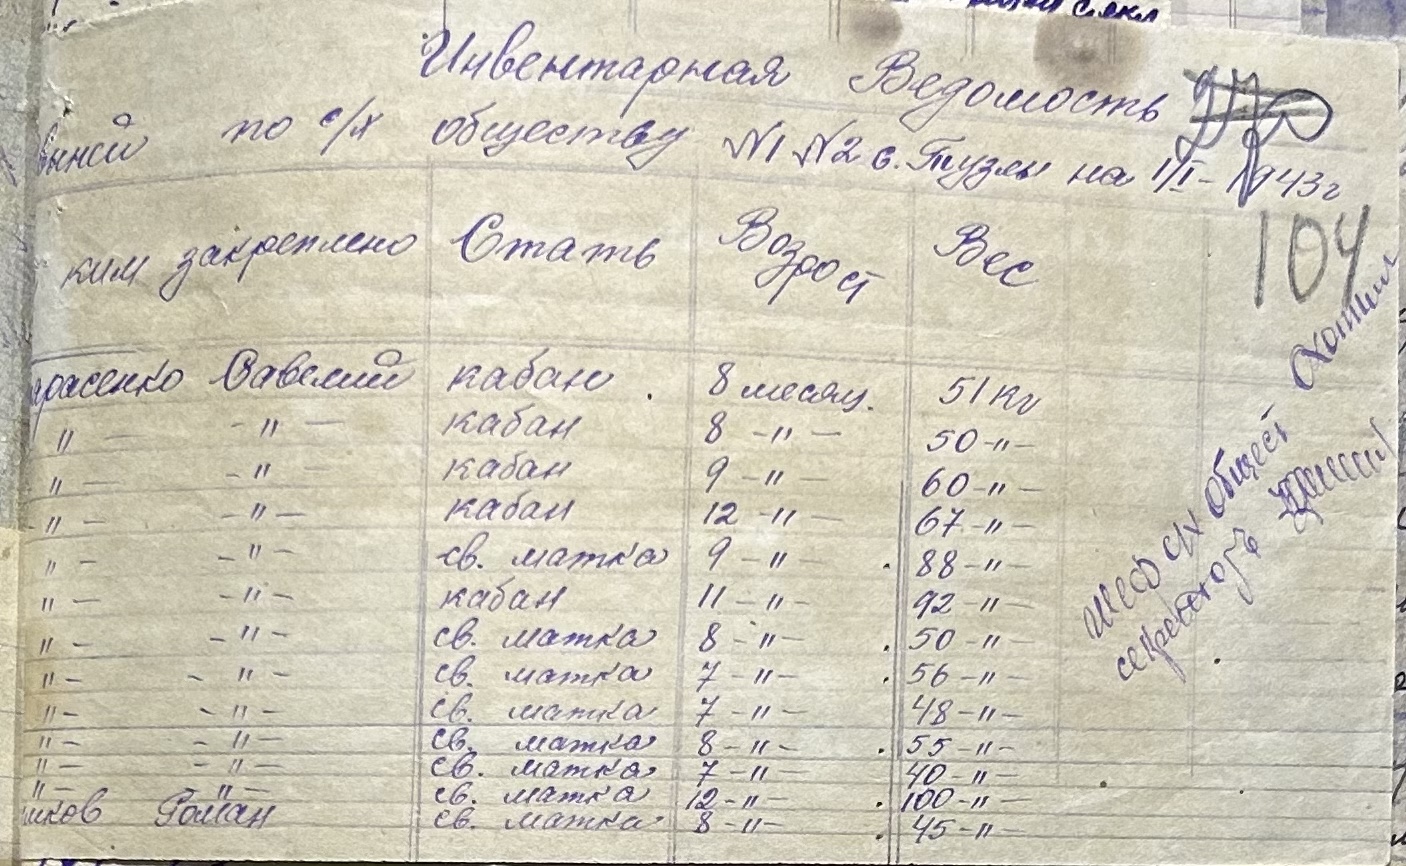 Инвентарная Ведомость
по с/х обществу N1 N2 с. Тузлы на 1/I-1943г
104
ким закреплено Стать Возраст Вес
арасенко Савелий кабан 8 месяц. 51 кг
" — - " — кабан 8 -"- 50 -"-
" — - " — кабан 9 -"- 60 -"-
" — - " — кабан 12 -"- 67 -"-
" — - " — св. матка 9 -"- 88 -"-
" — - " — кабан 11 -"- 92 -"-
" — - " — св. матка 8 -"- 50 -"-
" — - " — св. матка 7 -"- 56 -"-
" — - " — св. матка 7 -"- 48 -"-
" — - " — св. матка 8 -"- 55 -"-
" — - " — св. матка 7 -"- 40 -"-
" — " — св. матка 12 -"- 100 -"-
иков Роман св. матка 8 -"- 45 -"-
шеф с/х общест
секретарь